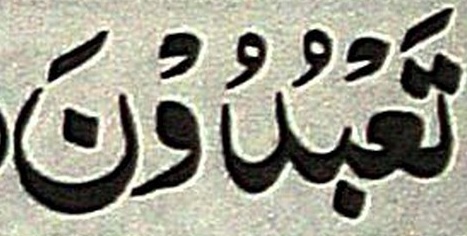 تَعْبُدُوْنَ